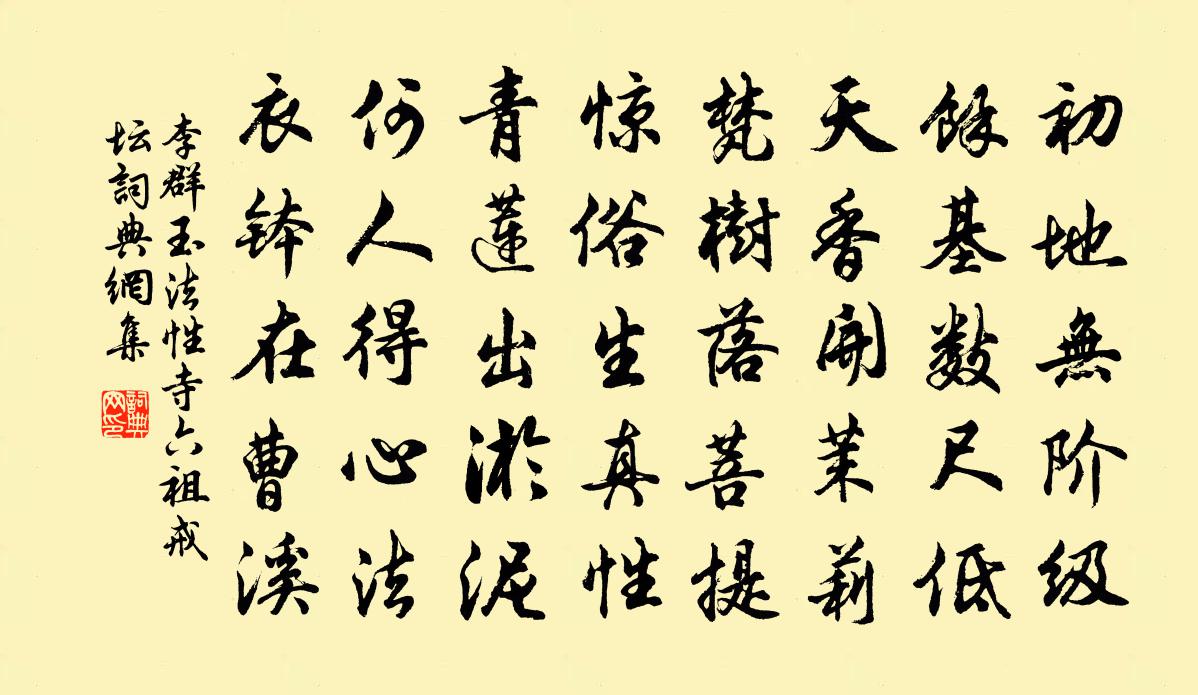 初地無阶级
餘基数尺低
天香開茉莉
梵樹落菩提
惊俗生真性
青蓮出淤泥
何人得心法
衣钵在曹溪
李群玉法性寺六祖戒
坛詞典網集
詞典网印